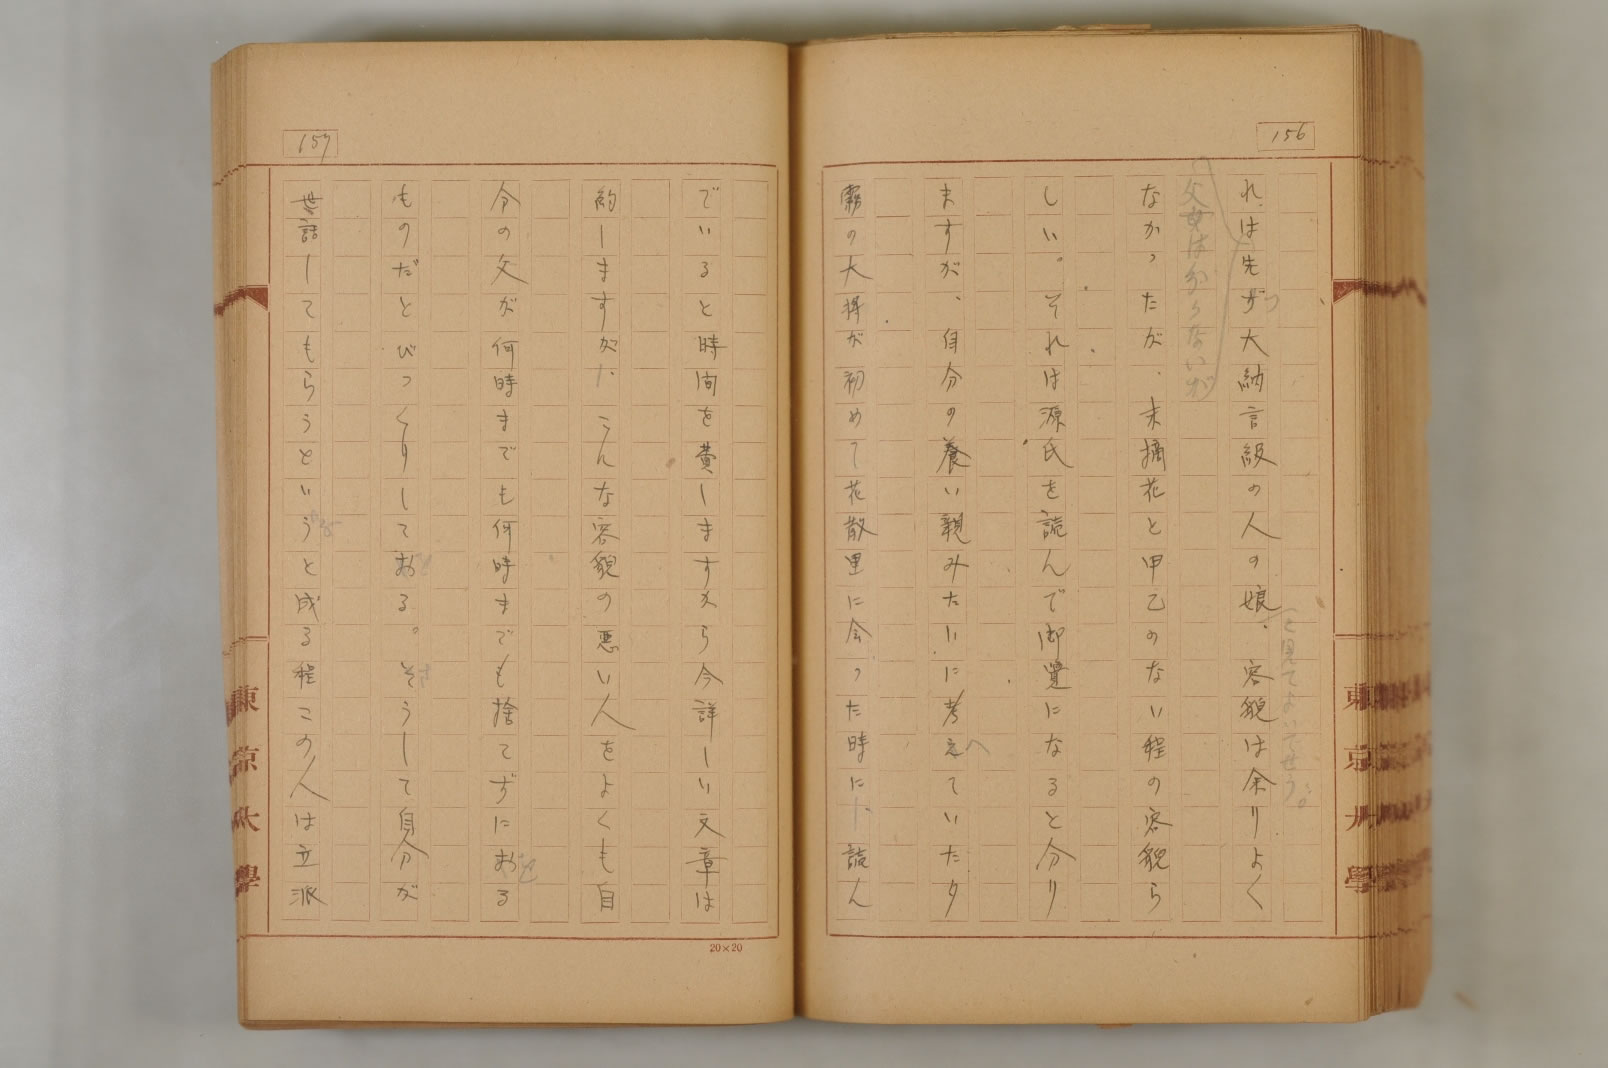 156
れは先ず大納言級の人の娘、容貌は余りよく
と見てよいでせう。
つ
父女は分らないが
なかったが、末摘花と甲乙のない程の容貌ら
しい。それは源氏を読んで御覧になると分り
ますが、自分の養い親みたいに考えていた夕
へ
霧の大将が初めて花散里に会った時に、読ん
157
でいると時間を費しますから今詳しい文章は
約しますが、こんな容貌の悪い人をよくも自
分の父が何時までも何時までも捨てずにおる
ものだとびっくりしておる。そうして自分が
世話してもらうというと成る程この人は立派
20×20
東京大學
東京大學